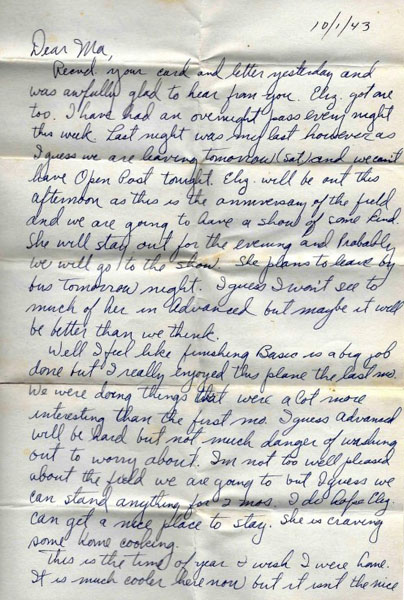 10/1/43
Dear Ma,
Recvd. your card and letter yesterday and
was awfully glad to hear from you. Eliz. got one
too. I have had an overnight pass every night
this week. Last night was my last however as
I guess we are leaving tomorrow (Sat) and we can't
have Open Post tonight. Eliz will be out this
afternoon as this is the anniversary of the field
and we are going to have a show of some kind.
She will stay out for the evening and probably
we will go to the show. She plans to leave by
bus tomorrow night. I guess I won't see to
much of her in Advanced but maybe it will
be better than we think.
Well I feel like finishing Basic is a big job
done but I really enjoyed this plane the last mo.
We were doing things that were a lot more
interesting than the first mo. I guess Advanced
will be hard but not much danger of washing
out to worry about. I'm not too well pleased
about the field we are going to but I guess we
can stand anything for 2 mos. I do hope Eliz.
can get a nice place to stay. She is craving
some home cooking.
This is the time of year I wish I were home.
It is much cooler here now but it isn't the nice